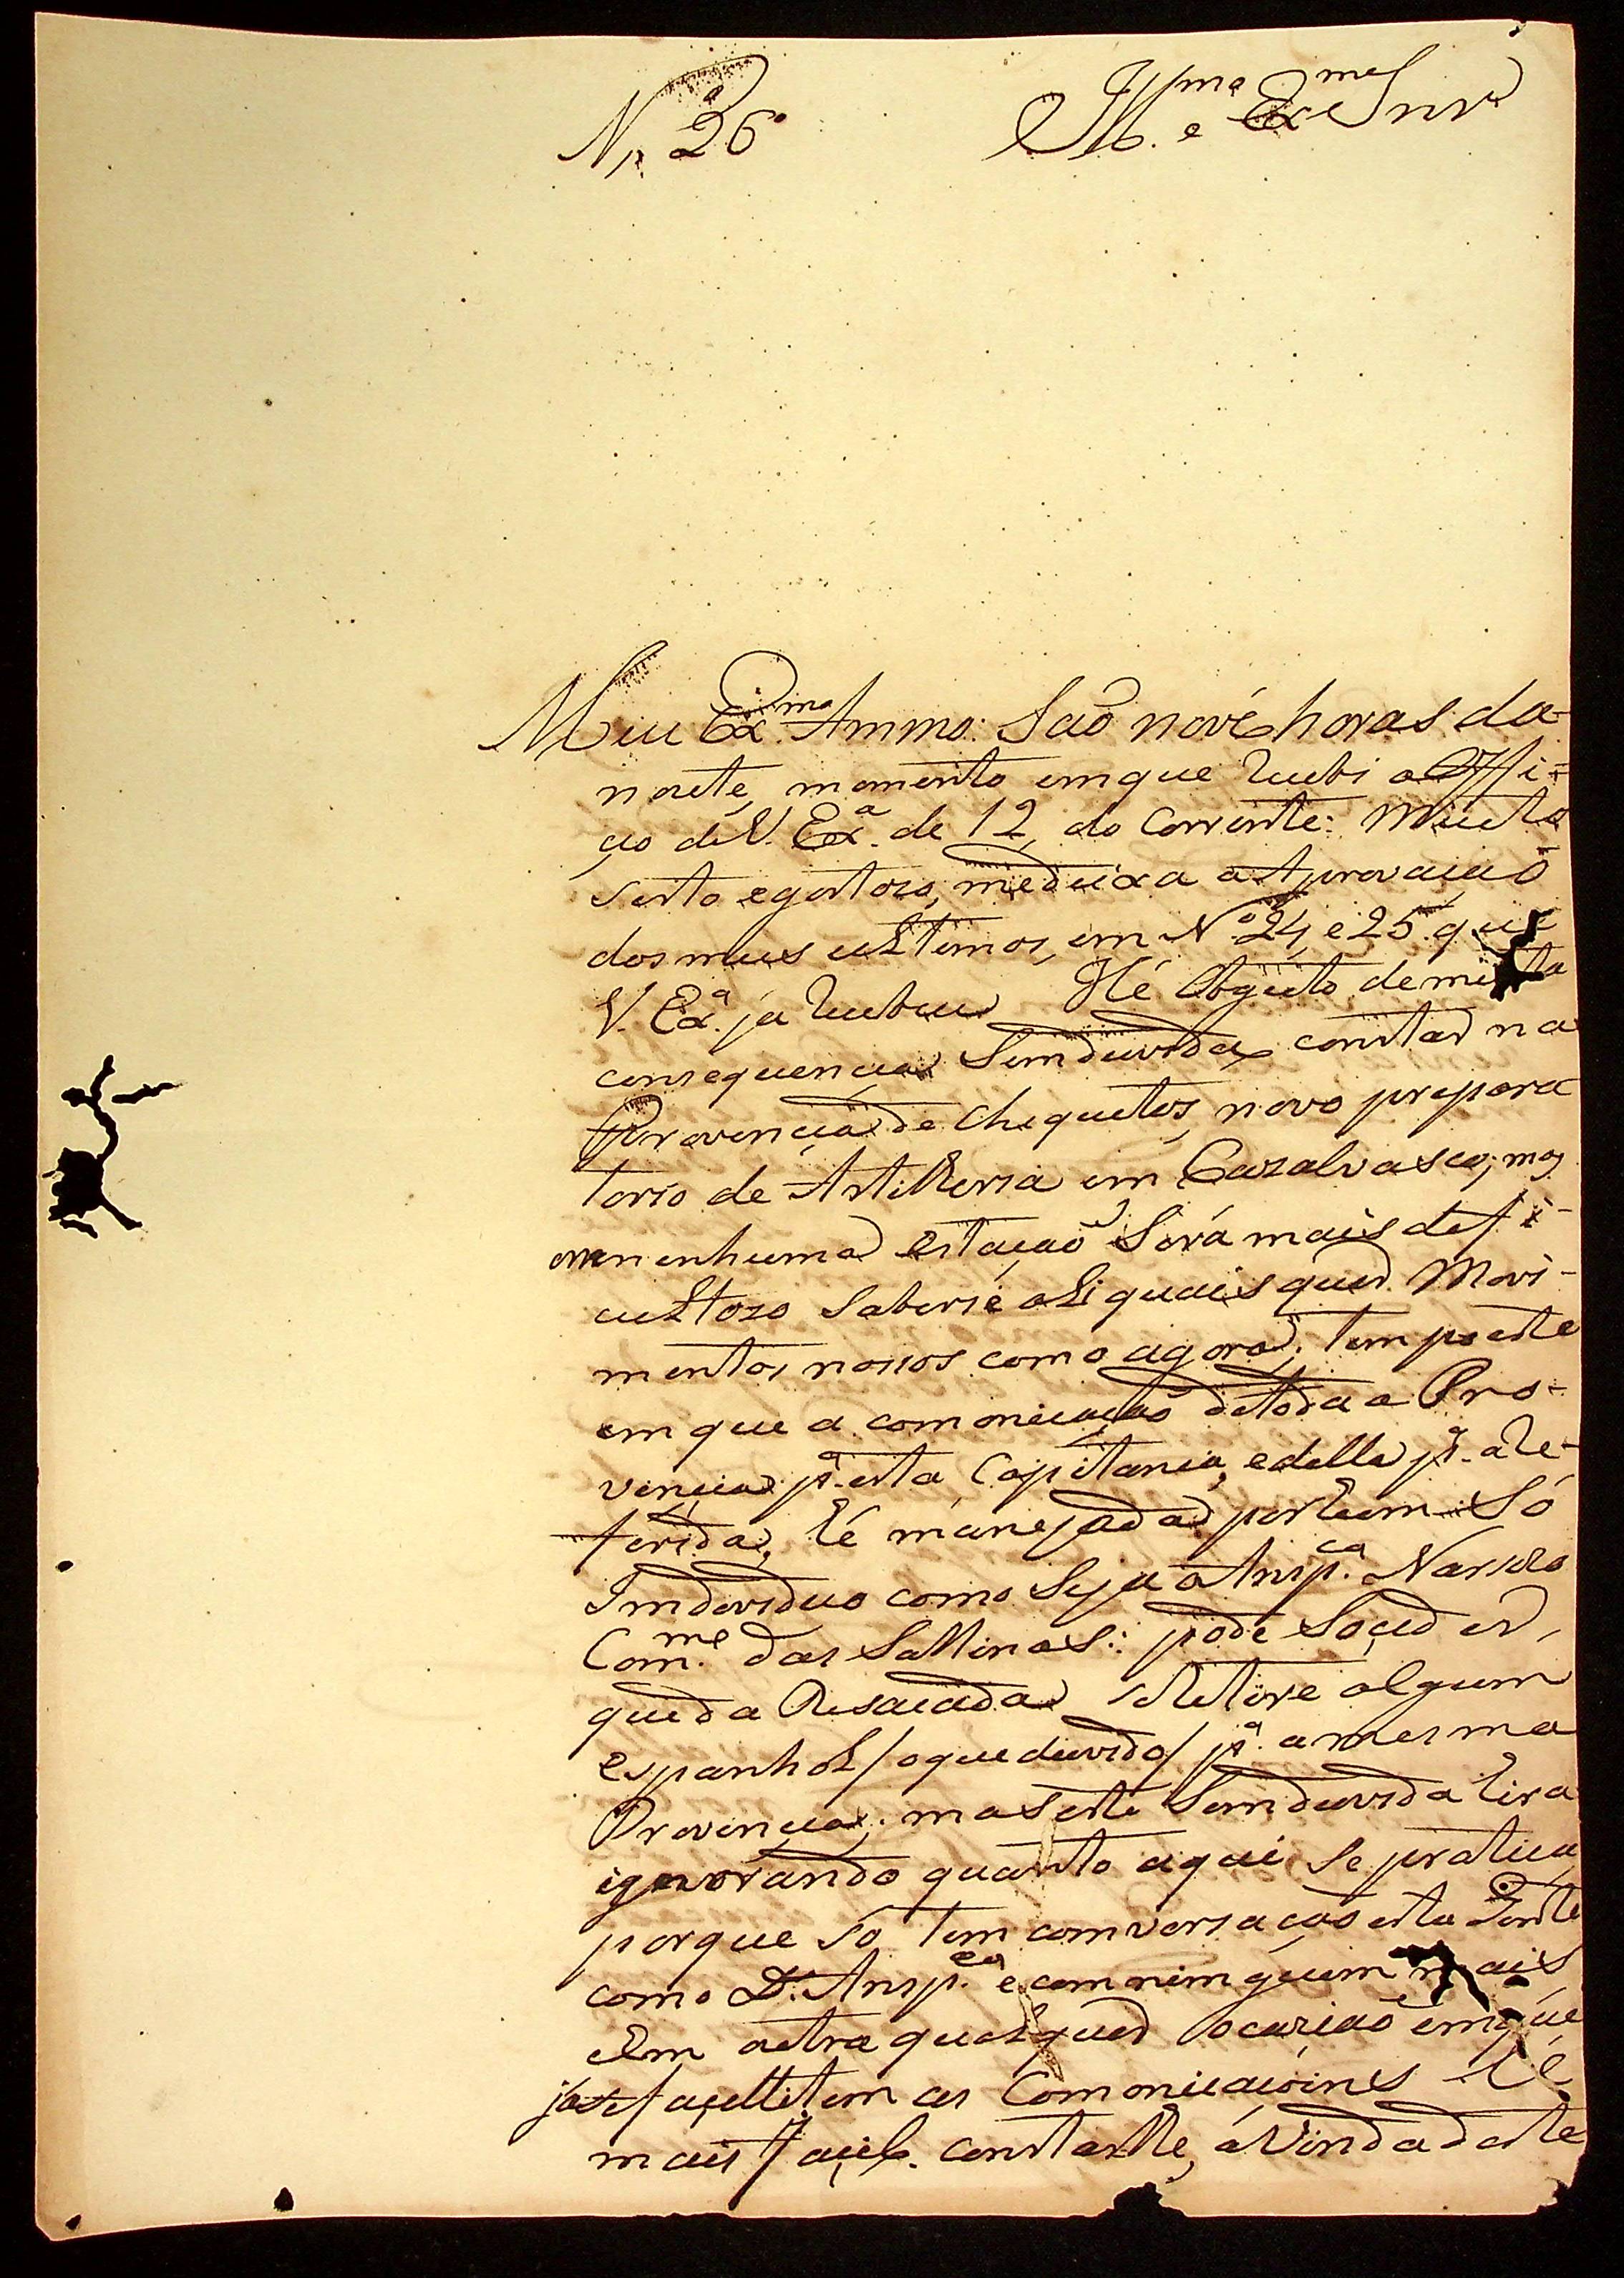 N.º 26.
Ill.mo e Ex.mo Snr.
Meu Ex.mo Ammo: Saõ nove horas da
noute, momento emque recebi o Offi-
cio de V. Ex.a de 12, do Corrente: Muito
serto egostozo, medeixa aAprovaçaõ
dosmeus ultimos, em N.º 24, e 25. que
V. Ex.a ja recebeu Hé Objecto demuita
consequencia Semduvida constar na
Provencia de Chequitos, novo prepara
torio de Artilheria em Cazalvasco; mas
em nenhuma estaçaõ Será mais defi-
cultozo Saberse ali quaisquer Movi-
mentos nossos como agora; tempo este
emque a comonicaçaõ detoda a Pro-
vencia p.a esta Capitania, edella p.a aRe-
ferida, hé manejada porhum Só
Individuo como Seja oAnsp.ca Narsizo
Com.me das Sallinas: pode Soceder,
queda Resacada seretire algum
espanhol / oqueduvido / p.a amesma
Provencia; maseste Semduvida hira
ignorando quanto aqui se pratica
porque Só tem comversaçaõ esta Gente
como D.º Ansp.ca ecomninguem mais
Em outra qualquer Ocaziaõ emque
jase facellitem as Comonicacoines hé
mais facil. constarlhe, aVinda deste